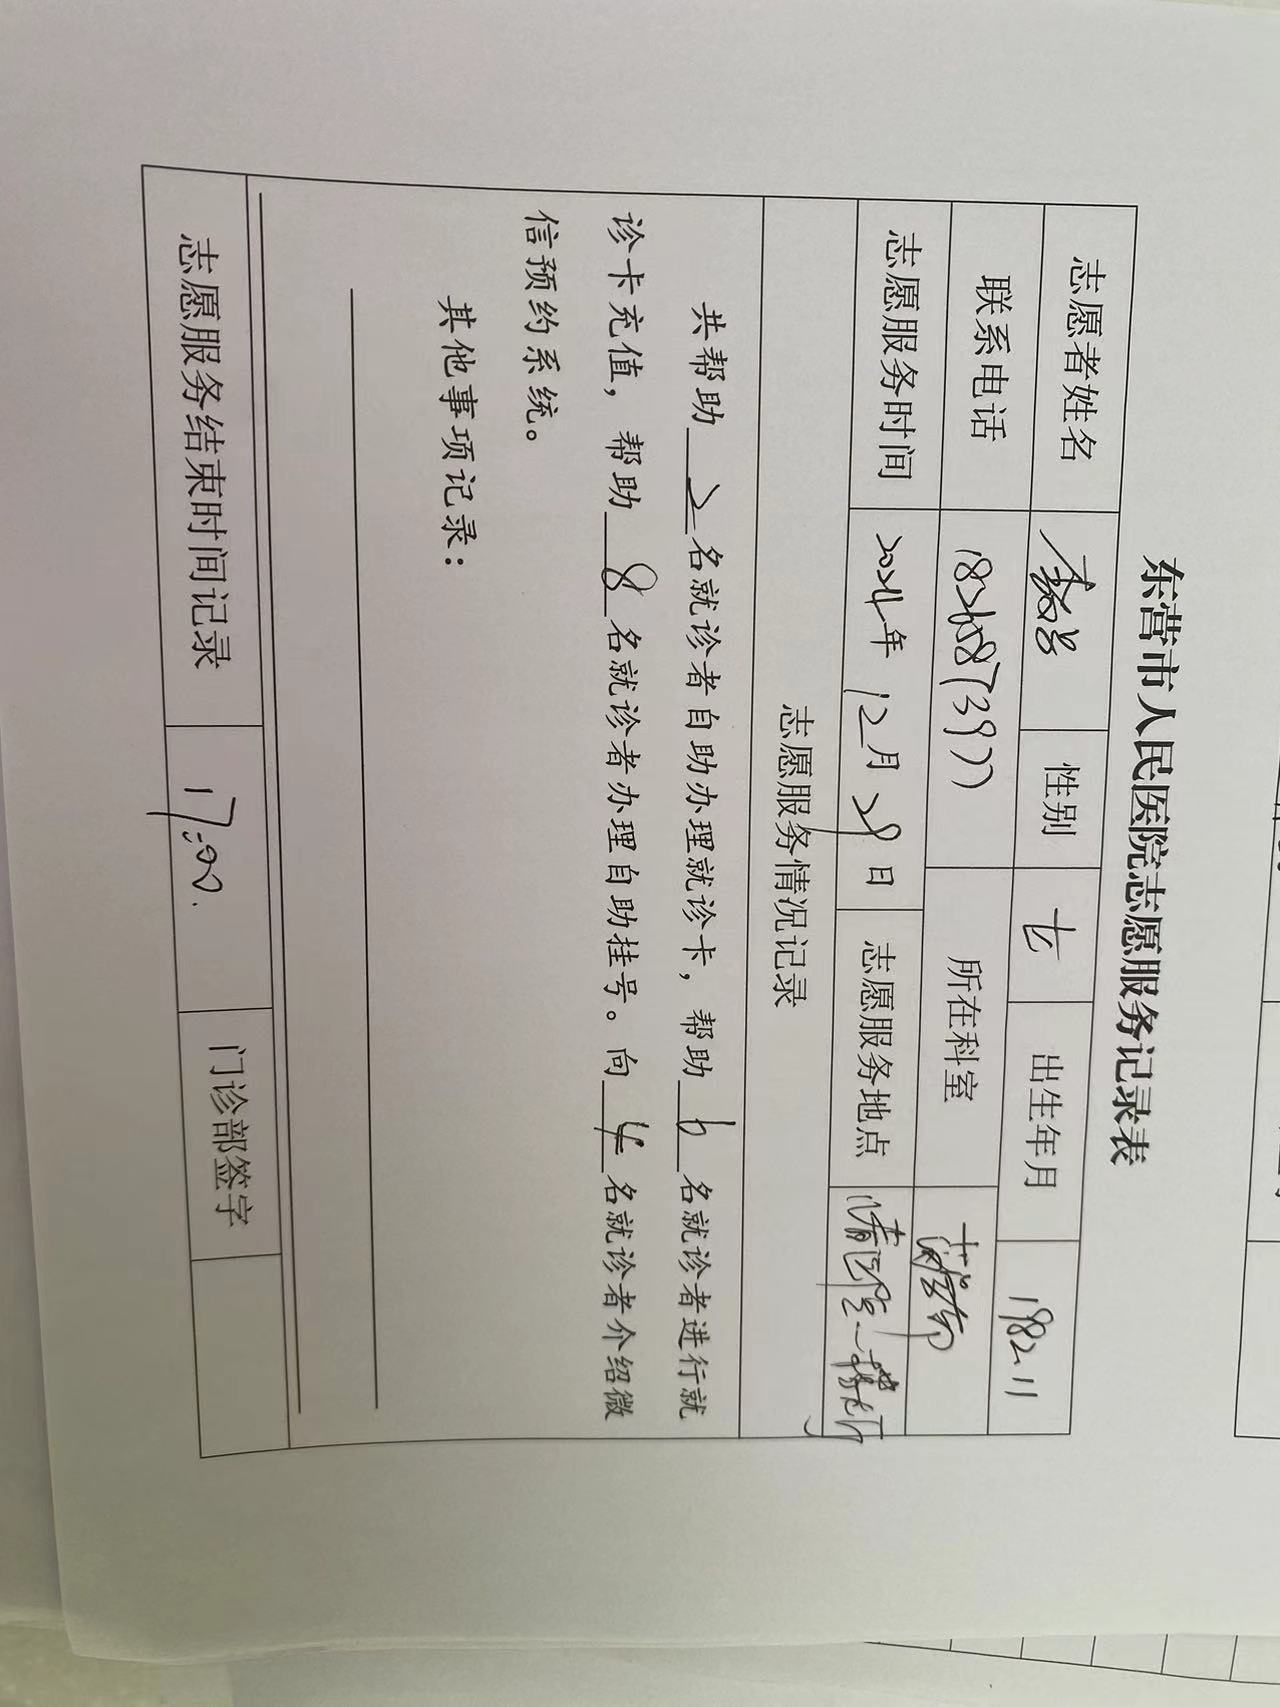 东营市人民医院志愿服务记录表
志愿者姓名 性别 女 出生年月 1982.11
联系电话 所在科室
志愿服务时间 2024年12月29日 志愿服务地点
志愿服务情况记录
共帮助2名就诊者自助办理就诊卡，帮助6名就诊者进行就
诊卡充值，帮助8名就诊者办理自助挂号。向4名就诊者介绍微
信预约系统。
其他事项记录：
志愿服务结束时间记录 17:00. 门诊部签字